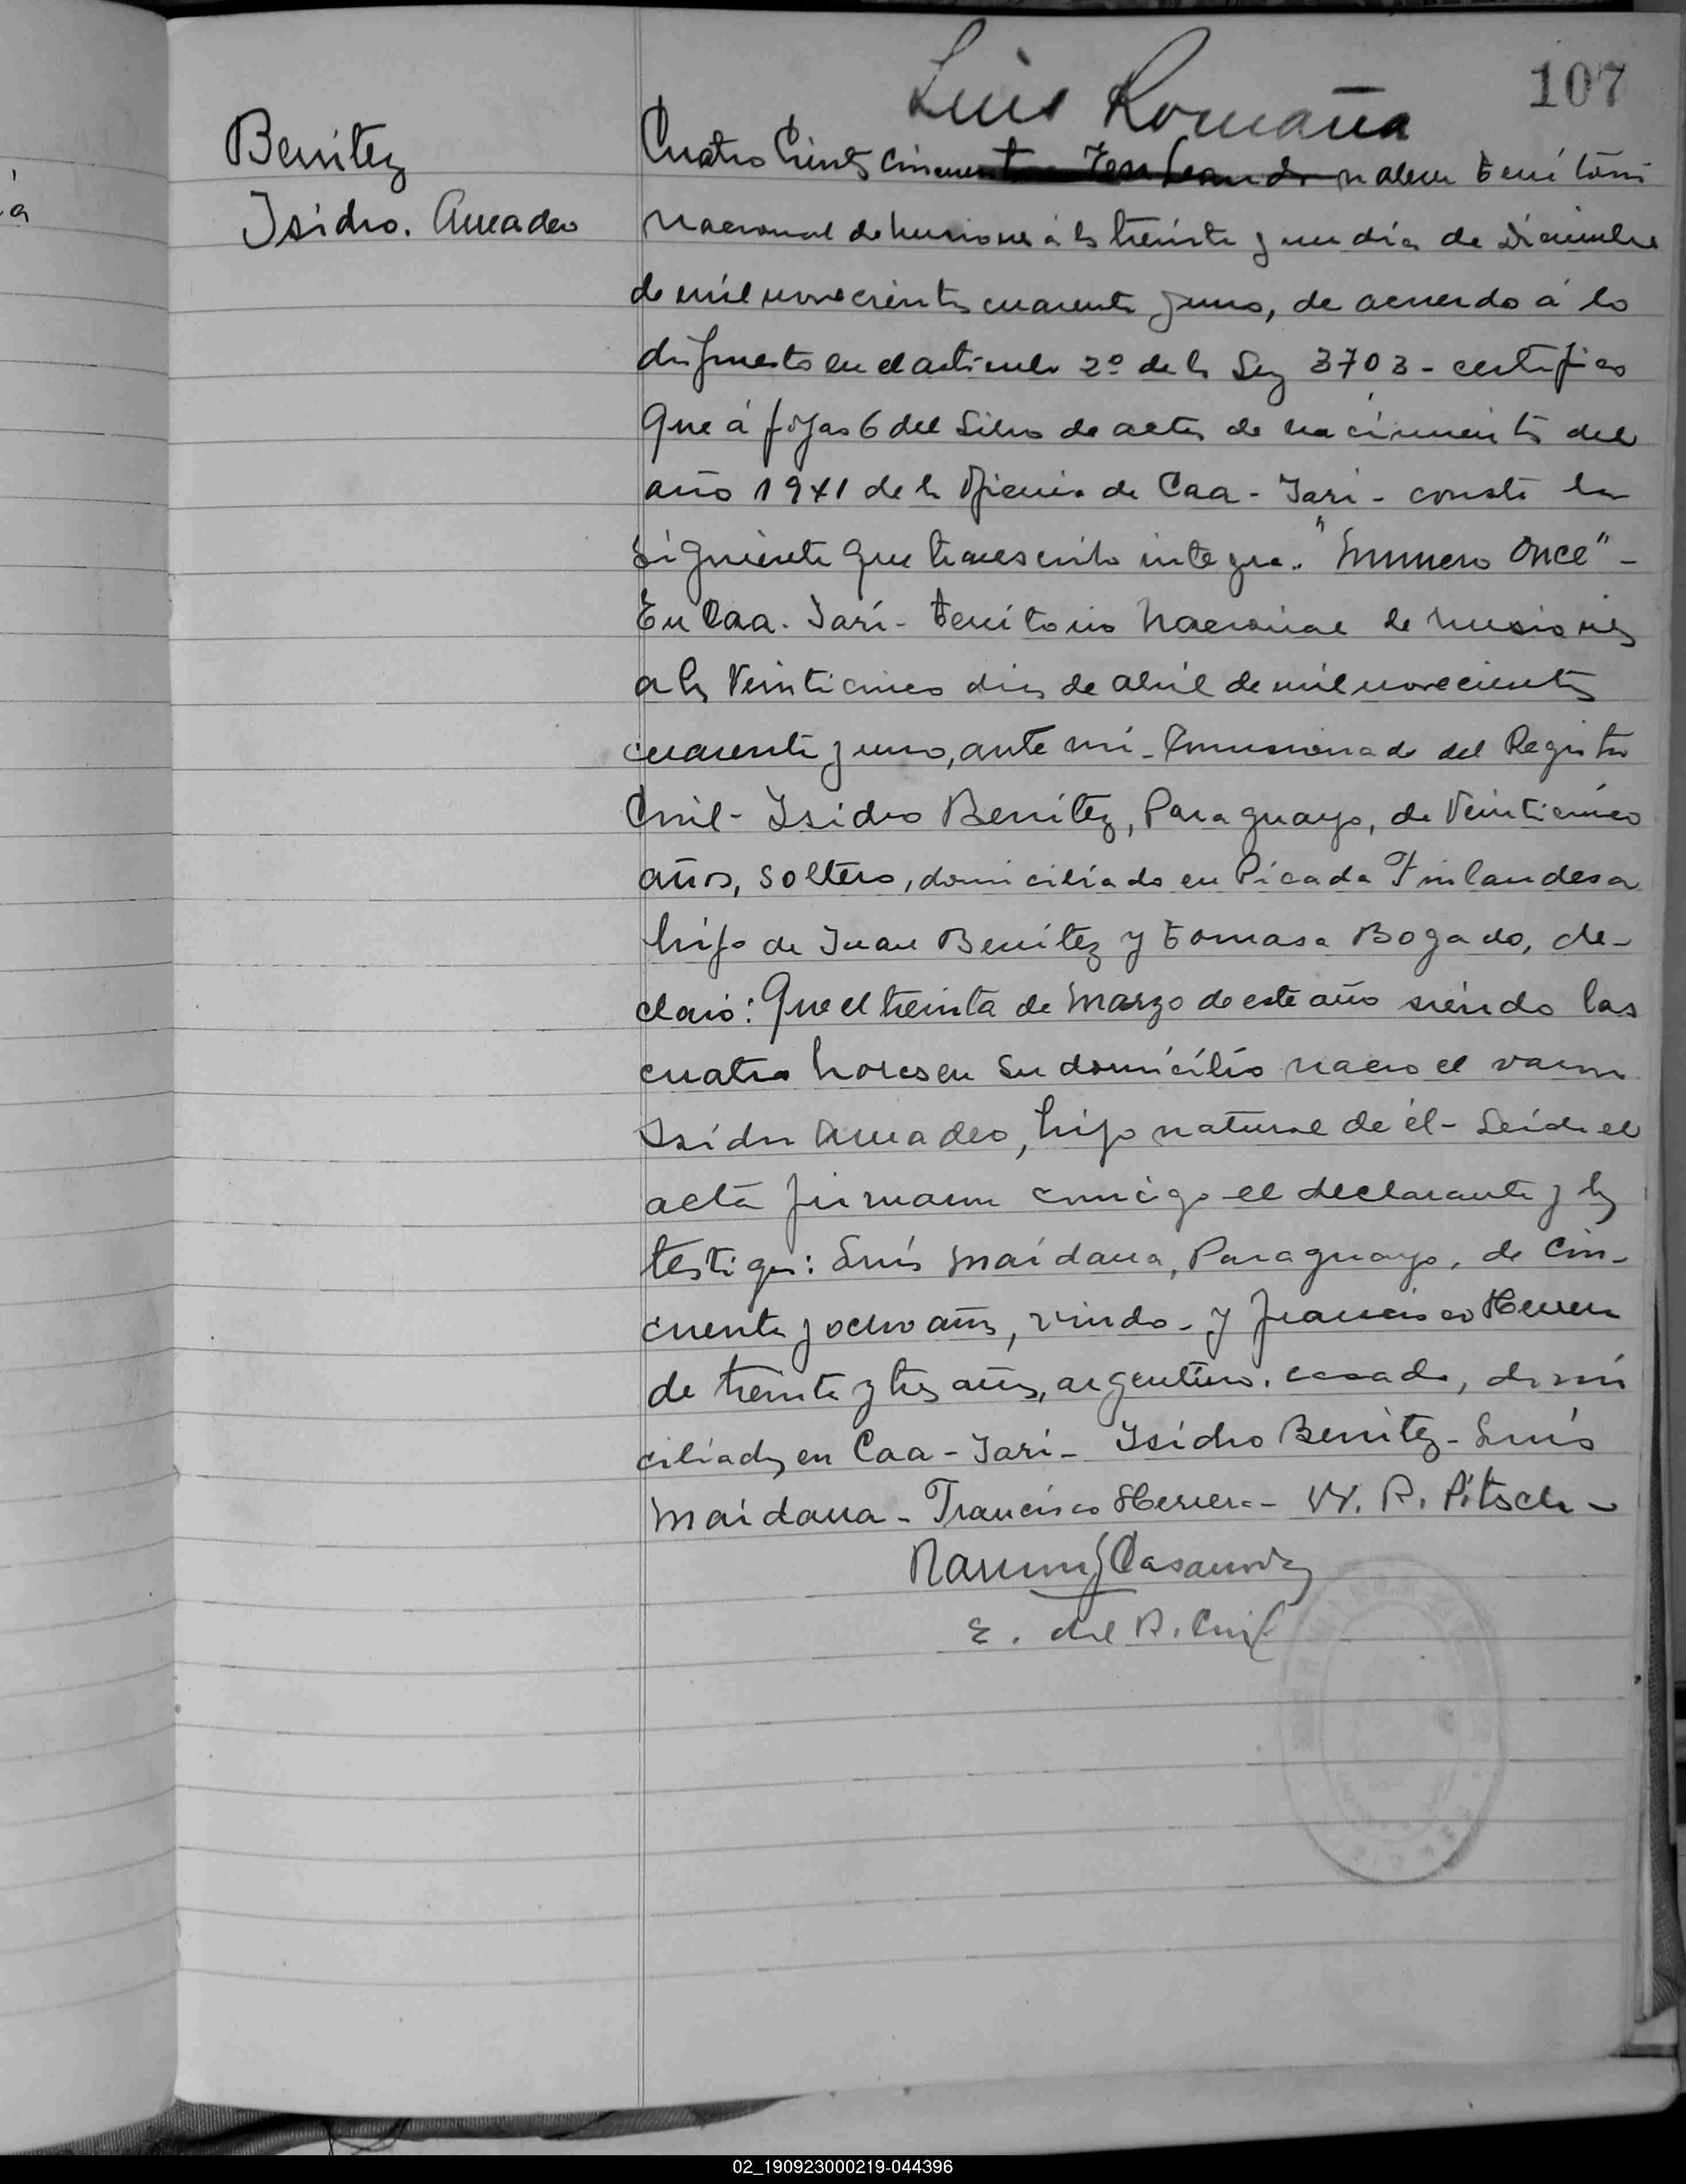 107
Luis Romaña
Benitez
Isidro. Amadeo
Cuatro Cientos cincuenta En Leandro N alem Territorio
Nacional de Misiones á los treinta y un dias de Diciembre
de mil novecientos cuarenta y uno, de acuerdo á lo
dispuesto en el articulo 2º de la Ley 3703 - certifico
Que á fojas 6 del Libro de actas de nacimientos del
año 1941 de la Oficina de Caa - Yari - consta la
siguiente que transcrito integra. "Numero Once" -
En Caa. Yarí - Territorio Nacional de Misiones
a los Veinticinco dias de abril de mil novecientos
cuarenta y uno, ante mi - Comisionado del Registro
Civil - Isidro Benítez, Paraguayo, de Veinticinco
años, soltero, domiciliado en Picada Finlandesa
hijo de Juan Benítez y Tomasa Bogado, de-
claró: Que el treinta de Marzo de este año siendo las
cuatro horas en su domicilio nacio el varon
Isidro Amadeo, hijo natural de él - Leida el
acta firmaron conmigo el declarante y los
testigos: Luís Maídana, Paraguayo, de cin-
cuenta y ocho años, viudo - y Francisco Herrera
de treinta y tres años, argentino. casado, domi
ciliados en Caa - Yari - Isidro Benitez - Luís
Maidana - Francisco Herrera - W. R. Pitsch -
Casanova
E. del R. Civil
02_190923000219-044396